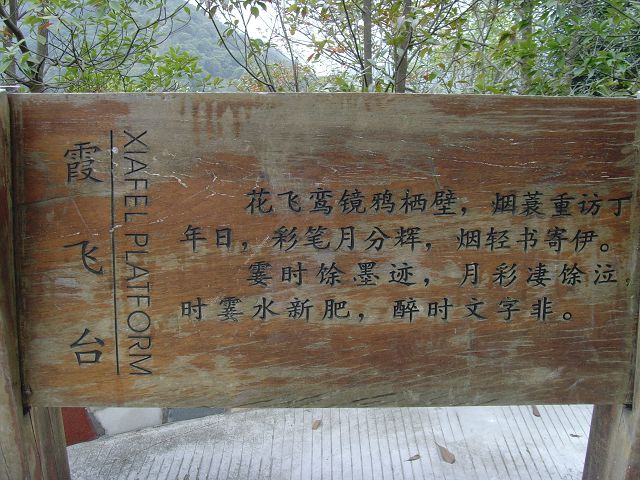 霞飞台
XIAFEI PLATFORM
花飞鸾镜鸦栖壁，烟蓑重访丁
年日，彩笔月分辉，烟轻书寄伊。
霎时馀墨迹，月彩凄馀泣，
时霎水新肥，醉时文字非。